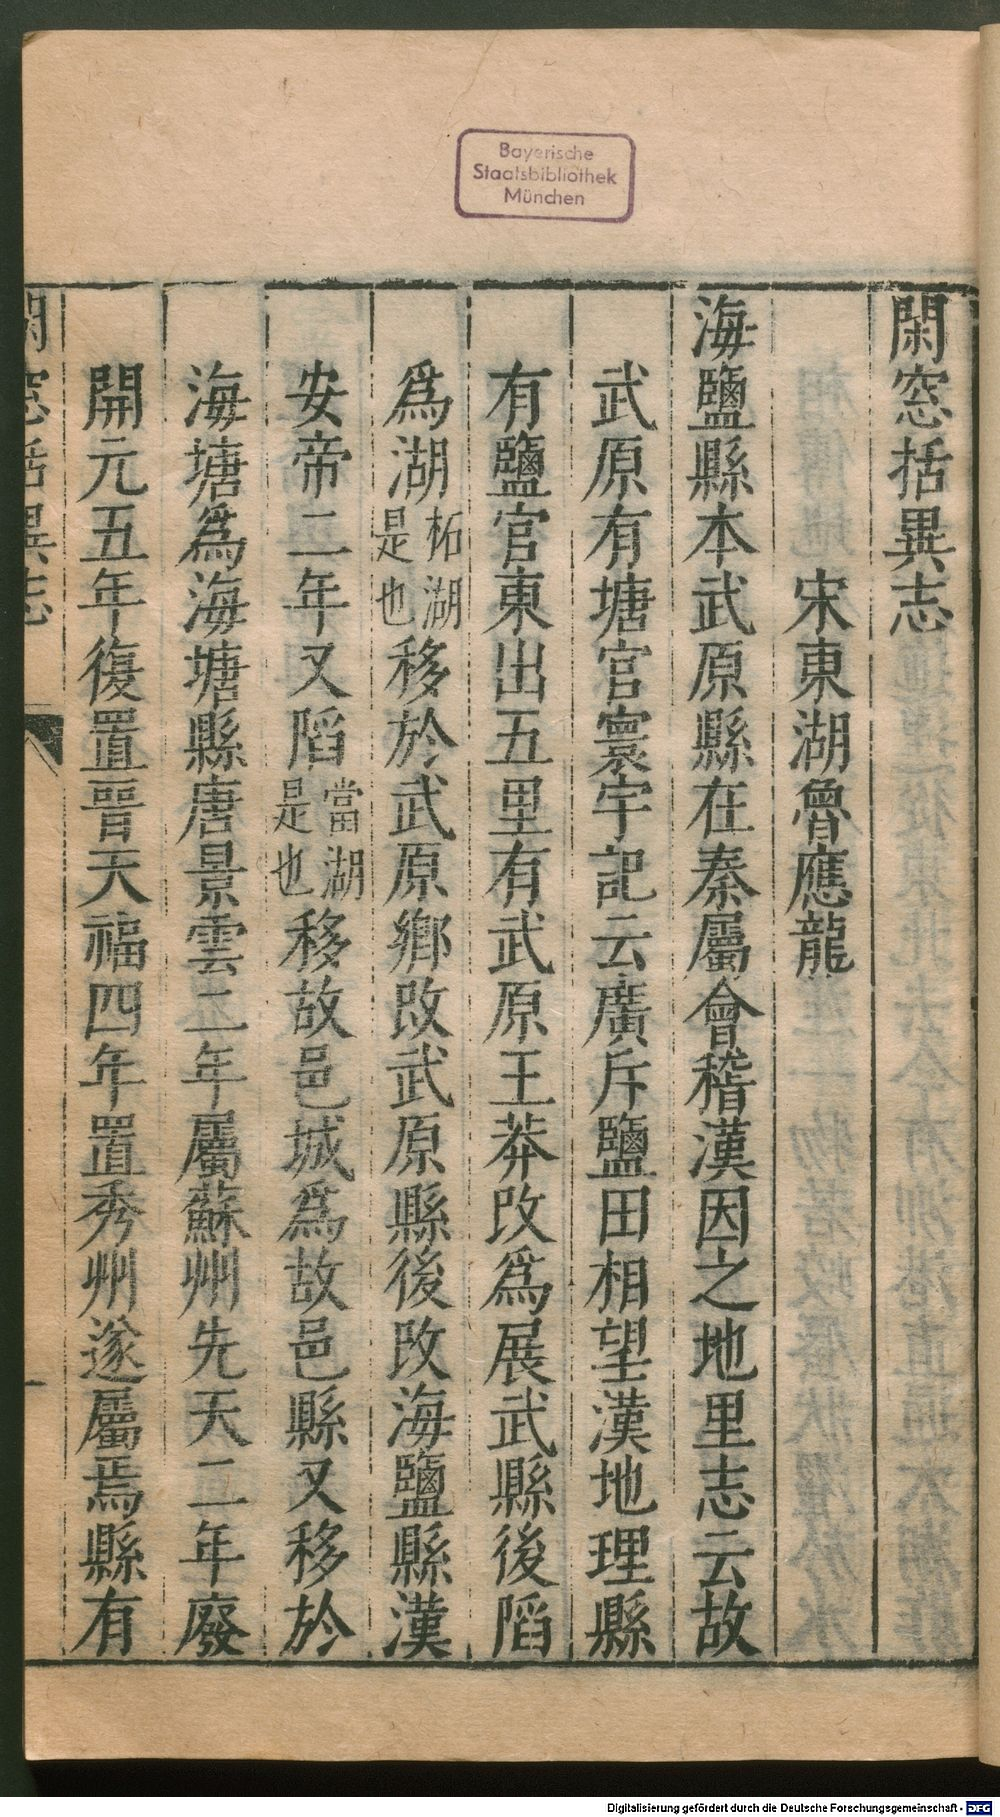 Bayerische
Staatsbibliothek
München
閑窓括異志
宋東湖魯應龍
海鹽縣本武原縣在秦屬會稽漢因之地里志云故
武原有塘官寰宇記云廣斥鹽田相望漢地理縣
有鹽官東出五里有武原王莽改爲展武縣後陷
爲湖柘湖是也移於武原鄉改武原縣後改海鹽縣漢
安帝二年又陷當湖是也移故邑城爲故邑縣又移於
海塘爲海塘縣唐景雲二年屬蘇州先天二年廢
開元五年復置晉天福四年置秀州遂屬焉縣有
閑窓括異志
一
Digitalisierung gefördert durch die Deutsche Forschungsgemeinschaft - DFG